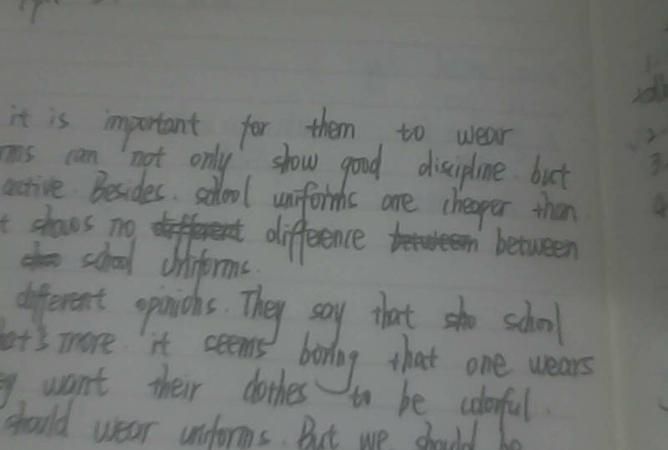 it is important for them to wear
rms can not only show good discipline but
active. Besides. school uniforms are cheaper than
t shows no different difference between between
school uniforms.
different opinions. They say that sho school
hat's more. it seems boring that one wears
ey want their clothes to be colorful.
should wear uniforms. But we should be